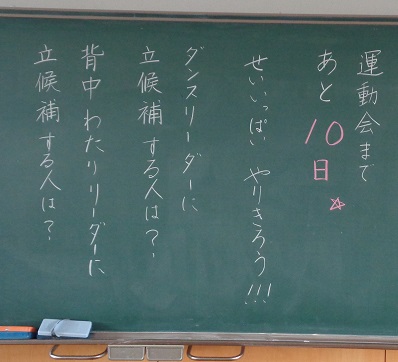 運動会まで
あと10日☆
せいいっぱい やりきろう!!!
ダンスリーダーに
立候補する人は?
背中わたりリーダーに
立候補する人は?